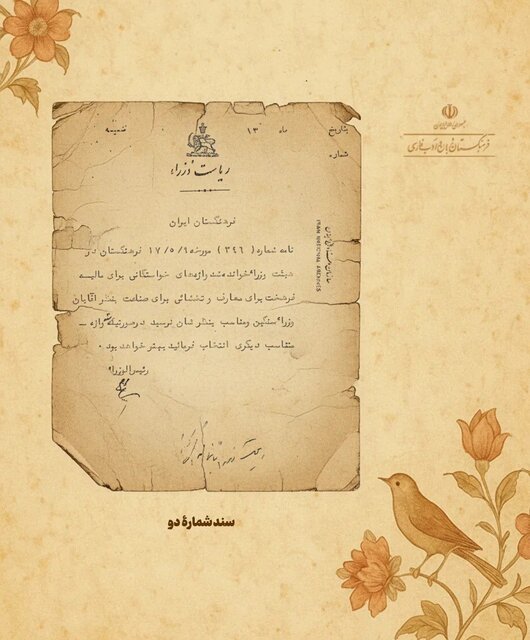 جمهوری اسلامی ایران
فرهنگستان زبان و ادب فارسی
بتاریخ ماه ۱۳ ضمیمه
شماره
ریاست وزراء
فرهنگستان ایران
نامه شماره (۳۴۶) مورخه ۱۷/۵/۹ فرهنگستان در
هیئت وزراء خوانده شد واژه‌های خواستگانی برای مالیه
فرهخت برای معارف و تخشائی برای صناعت بنظر آقایان
وزراء سنگین ومناسب بنظرشان نرسید درصورتیکه واژه –
متناسب دیگری انتخاب فرمائید بهتر خواهد بود.
رئیس الوزراء
سازمان اسناد ملی ایران
IRAN NATIONAL ARCHIVES
سند شمارهٔ دو